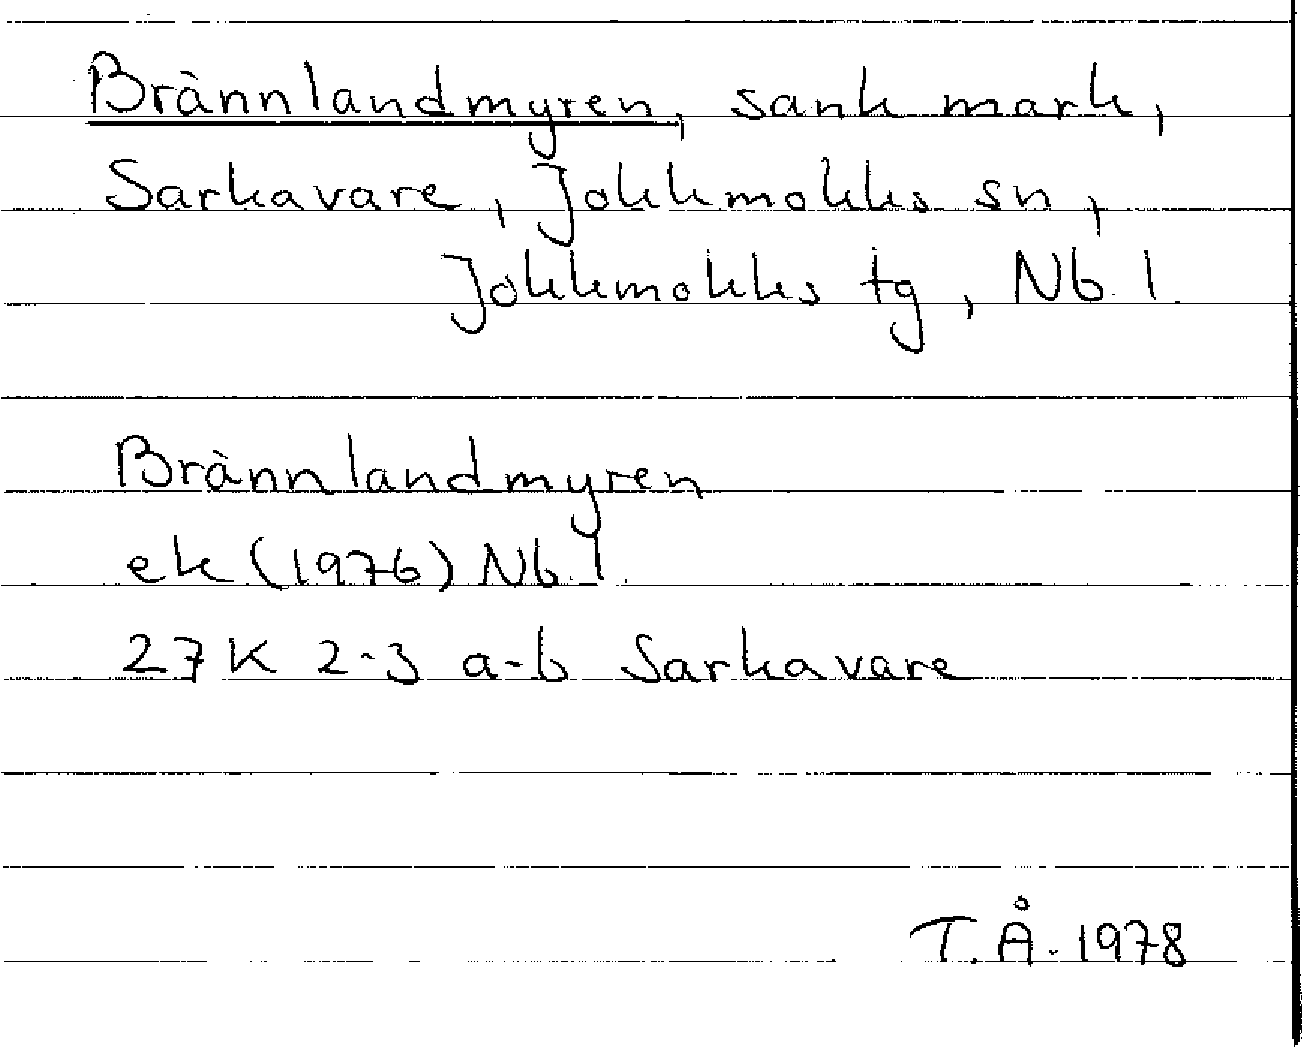 Brännlandmyren, sank mark,
Sarkavare, Jokkmokks sn,
Jokkmokks tg, Nb. l.
Brännlandmyren
ek (1976) Nb. l.
27 K 2-3 a-b Sarkavare
T. Å. 1978